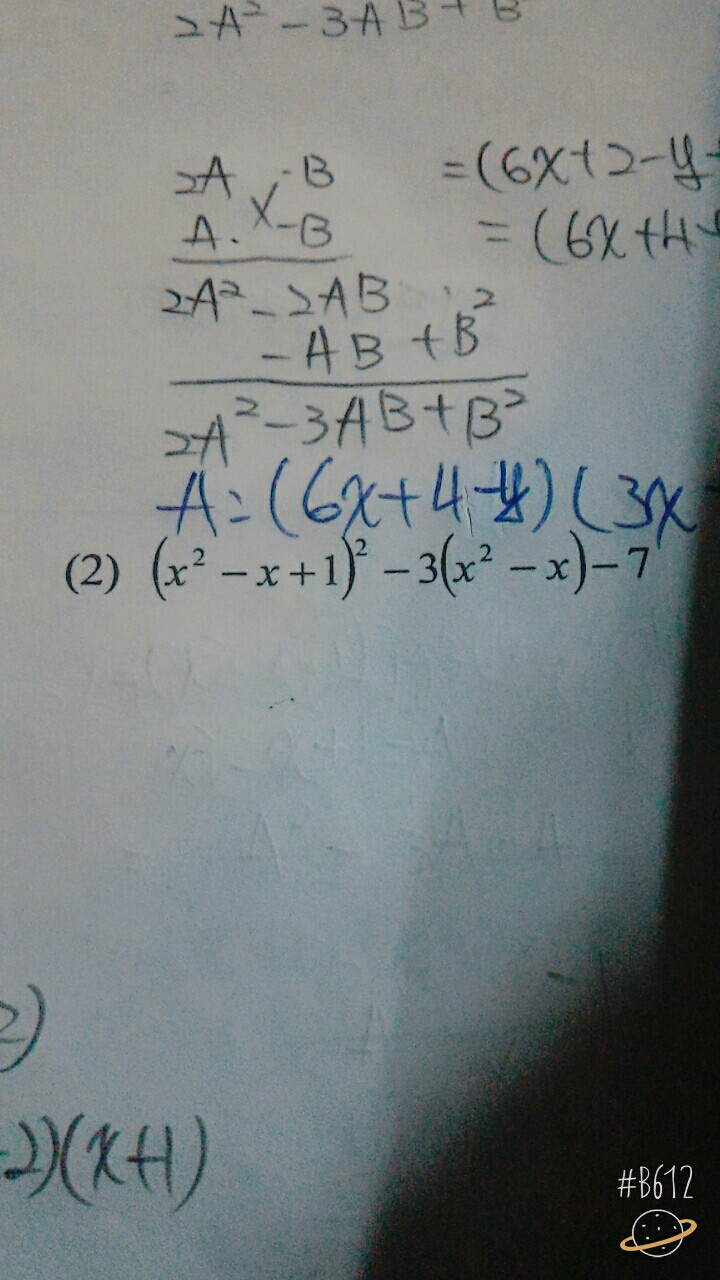 2A² - 3AB + B
2A -B =(6x+2-y
A. -B = (6x+4
2A² - 2AB
- AB + B²
2A² - 3AB + B²
A: (6x+4-y)(3x
(2) (x² - x + 1)² - 3(x² - x) - 7
2)
2)(x+1)
#B612